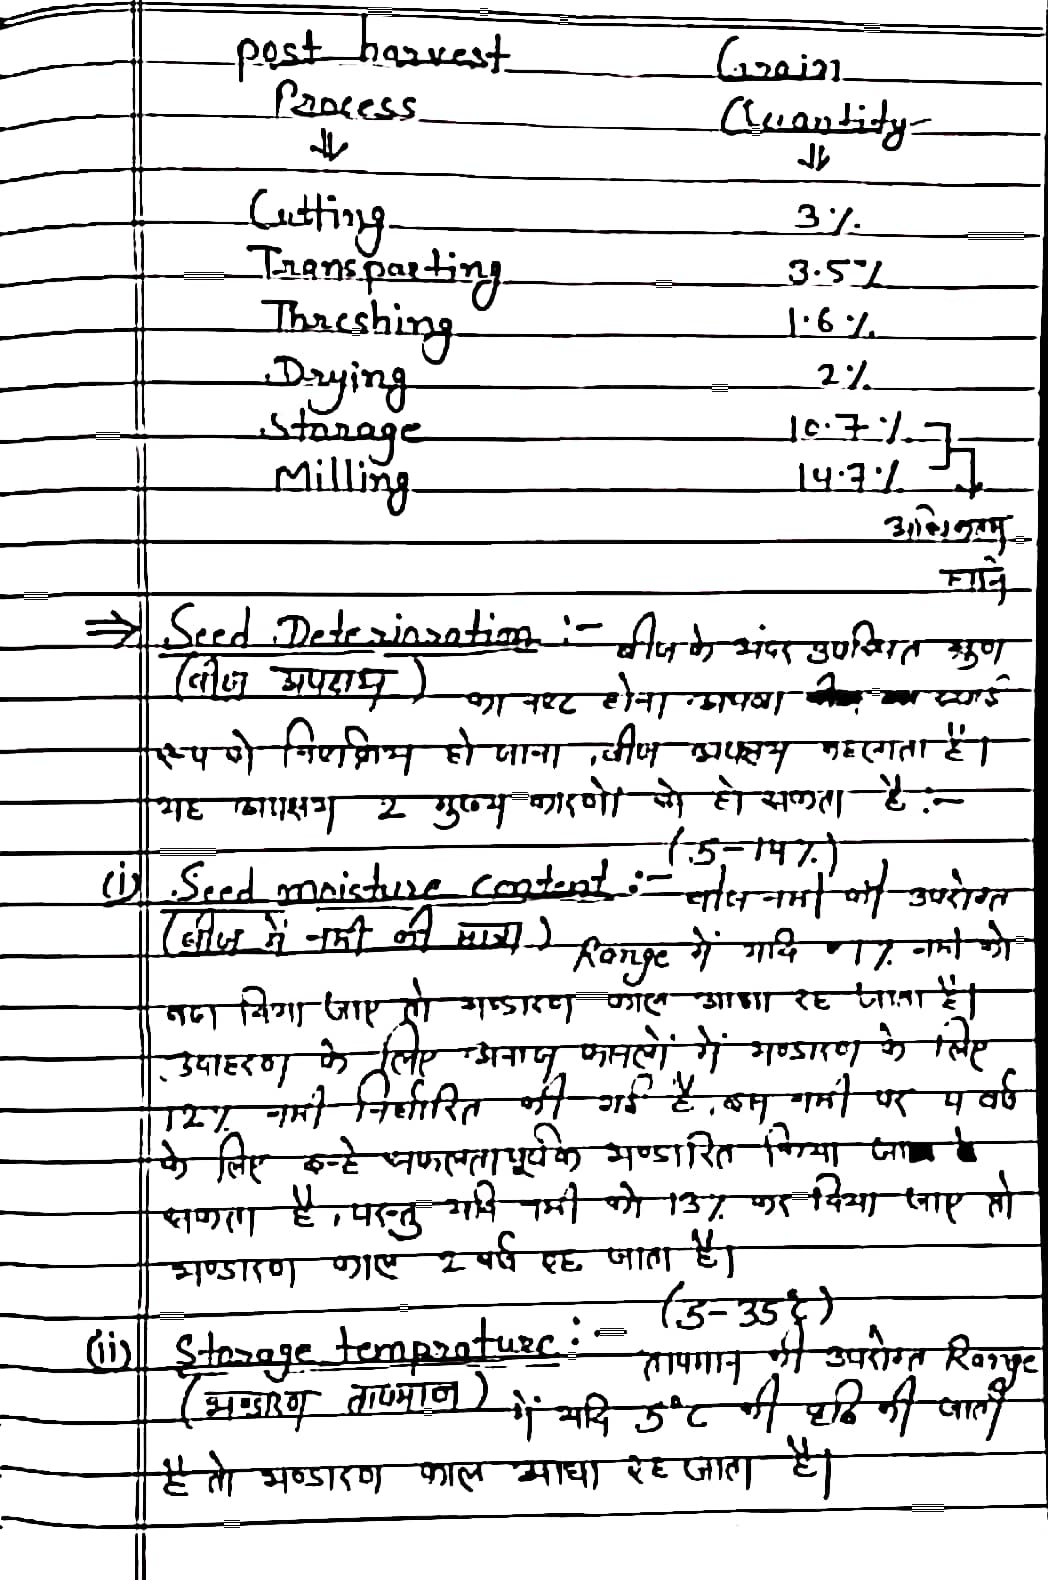 post harvest Grain
Process Quantity
⇓ ⇓
Cutting 3%
Transporting 3.5%
Threshing 1.6%
Drying 2%
Storage 10.7%
Milling 14.7%
अधिकतम
हानि
⇒ Seed Deterioration :- बीज के अंदर उपस्थित भ्रूण
(बीज अपक्षय) का नष्ट होना अथवा स्थाई
रूप से निष्क्रिय हो जाना, बीज अपक्षय कहलाता है।
यह अपक्षय 2 मुख्य कारणों से हो सकता है :-
(5-14%)
(i) Seed moisture content :- बीज नमी की उपरोक्त
(बीज में नमी की मात्रा) Range में यदि 1% नमी को
बढ़ा दिया जाए तो भण्डारण काल आधा रह जाता है।
उदाहरण के लिए अनाज फसलों में भण्डारण के लिए
12% नमी निर्धारित की गई है, इस नमी पर 4 वर्ष
के लिए इन्हे सफलतापूर्वक भण्डारित किया जा
सकता है, परन्तु यदि नमी को 13% कर दिया जाए तो
भण्डारण काल 2 वर्ष रह जाता है।
(5-35°C)
(ii) Storage temprature :- तापमान की उपरोक्त Range
(भण्डारण तापमान) में यदि 5°C की वृद्धि की जाती
है तो भण्डारण काल आधा रह जाता है।